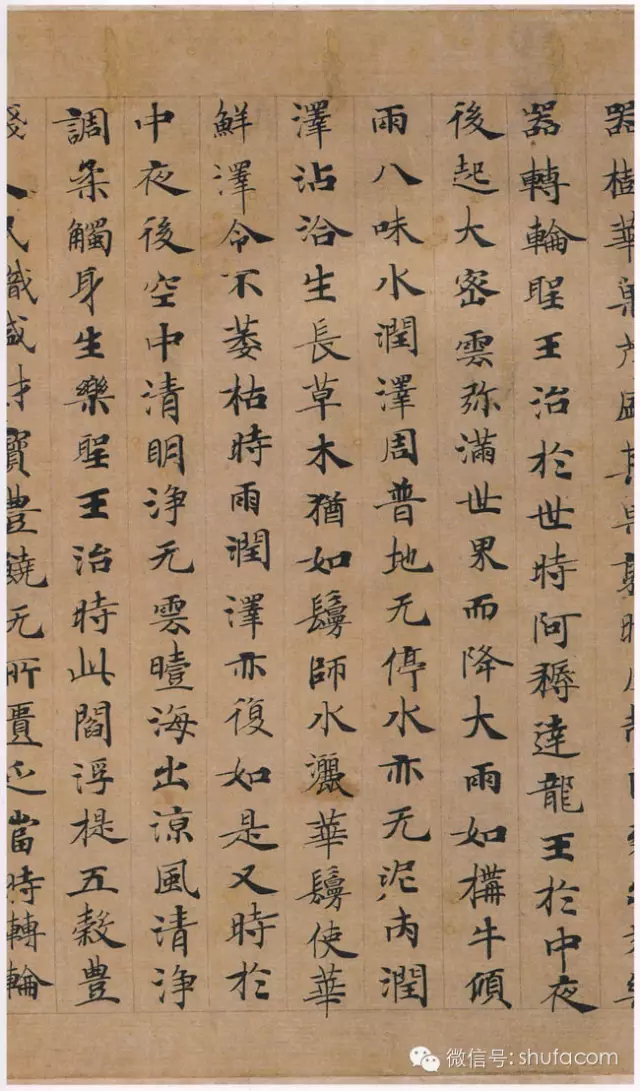 器華菓茂盛其菓
器轉輪聖王治於世時阿耨達龍王於中夜
後起大密雲弥滿世界而降大雨如構牛傾
雨八味水潤澤周普地无停水亦无泥丙潤
澤沾洽生長草木猶如鬘師水灑華鬘使華
鮮澤令不萎枯時雨潤澤亦復如是又時於
中夜後空中清明浄无雲曀海出涼風清浄
調柔觸身生樂聖王治時此閻浮提五穀豊
賤人民熾盛財寶豊饒无所匱乏當時轉輪
微信号: shufacom